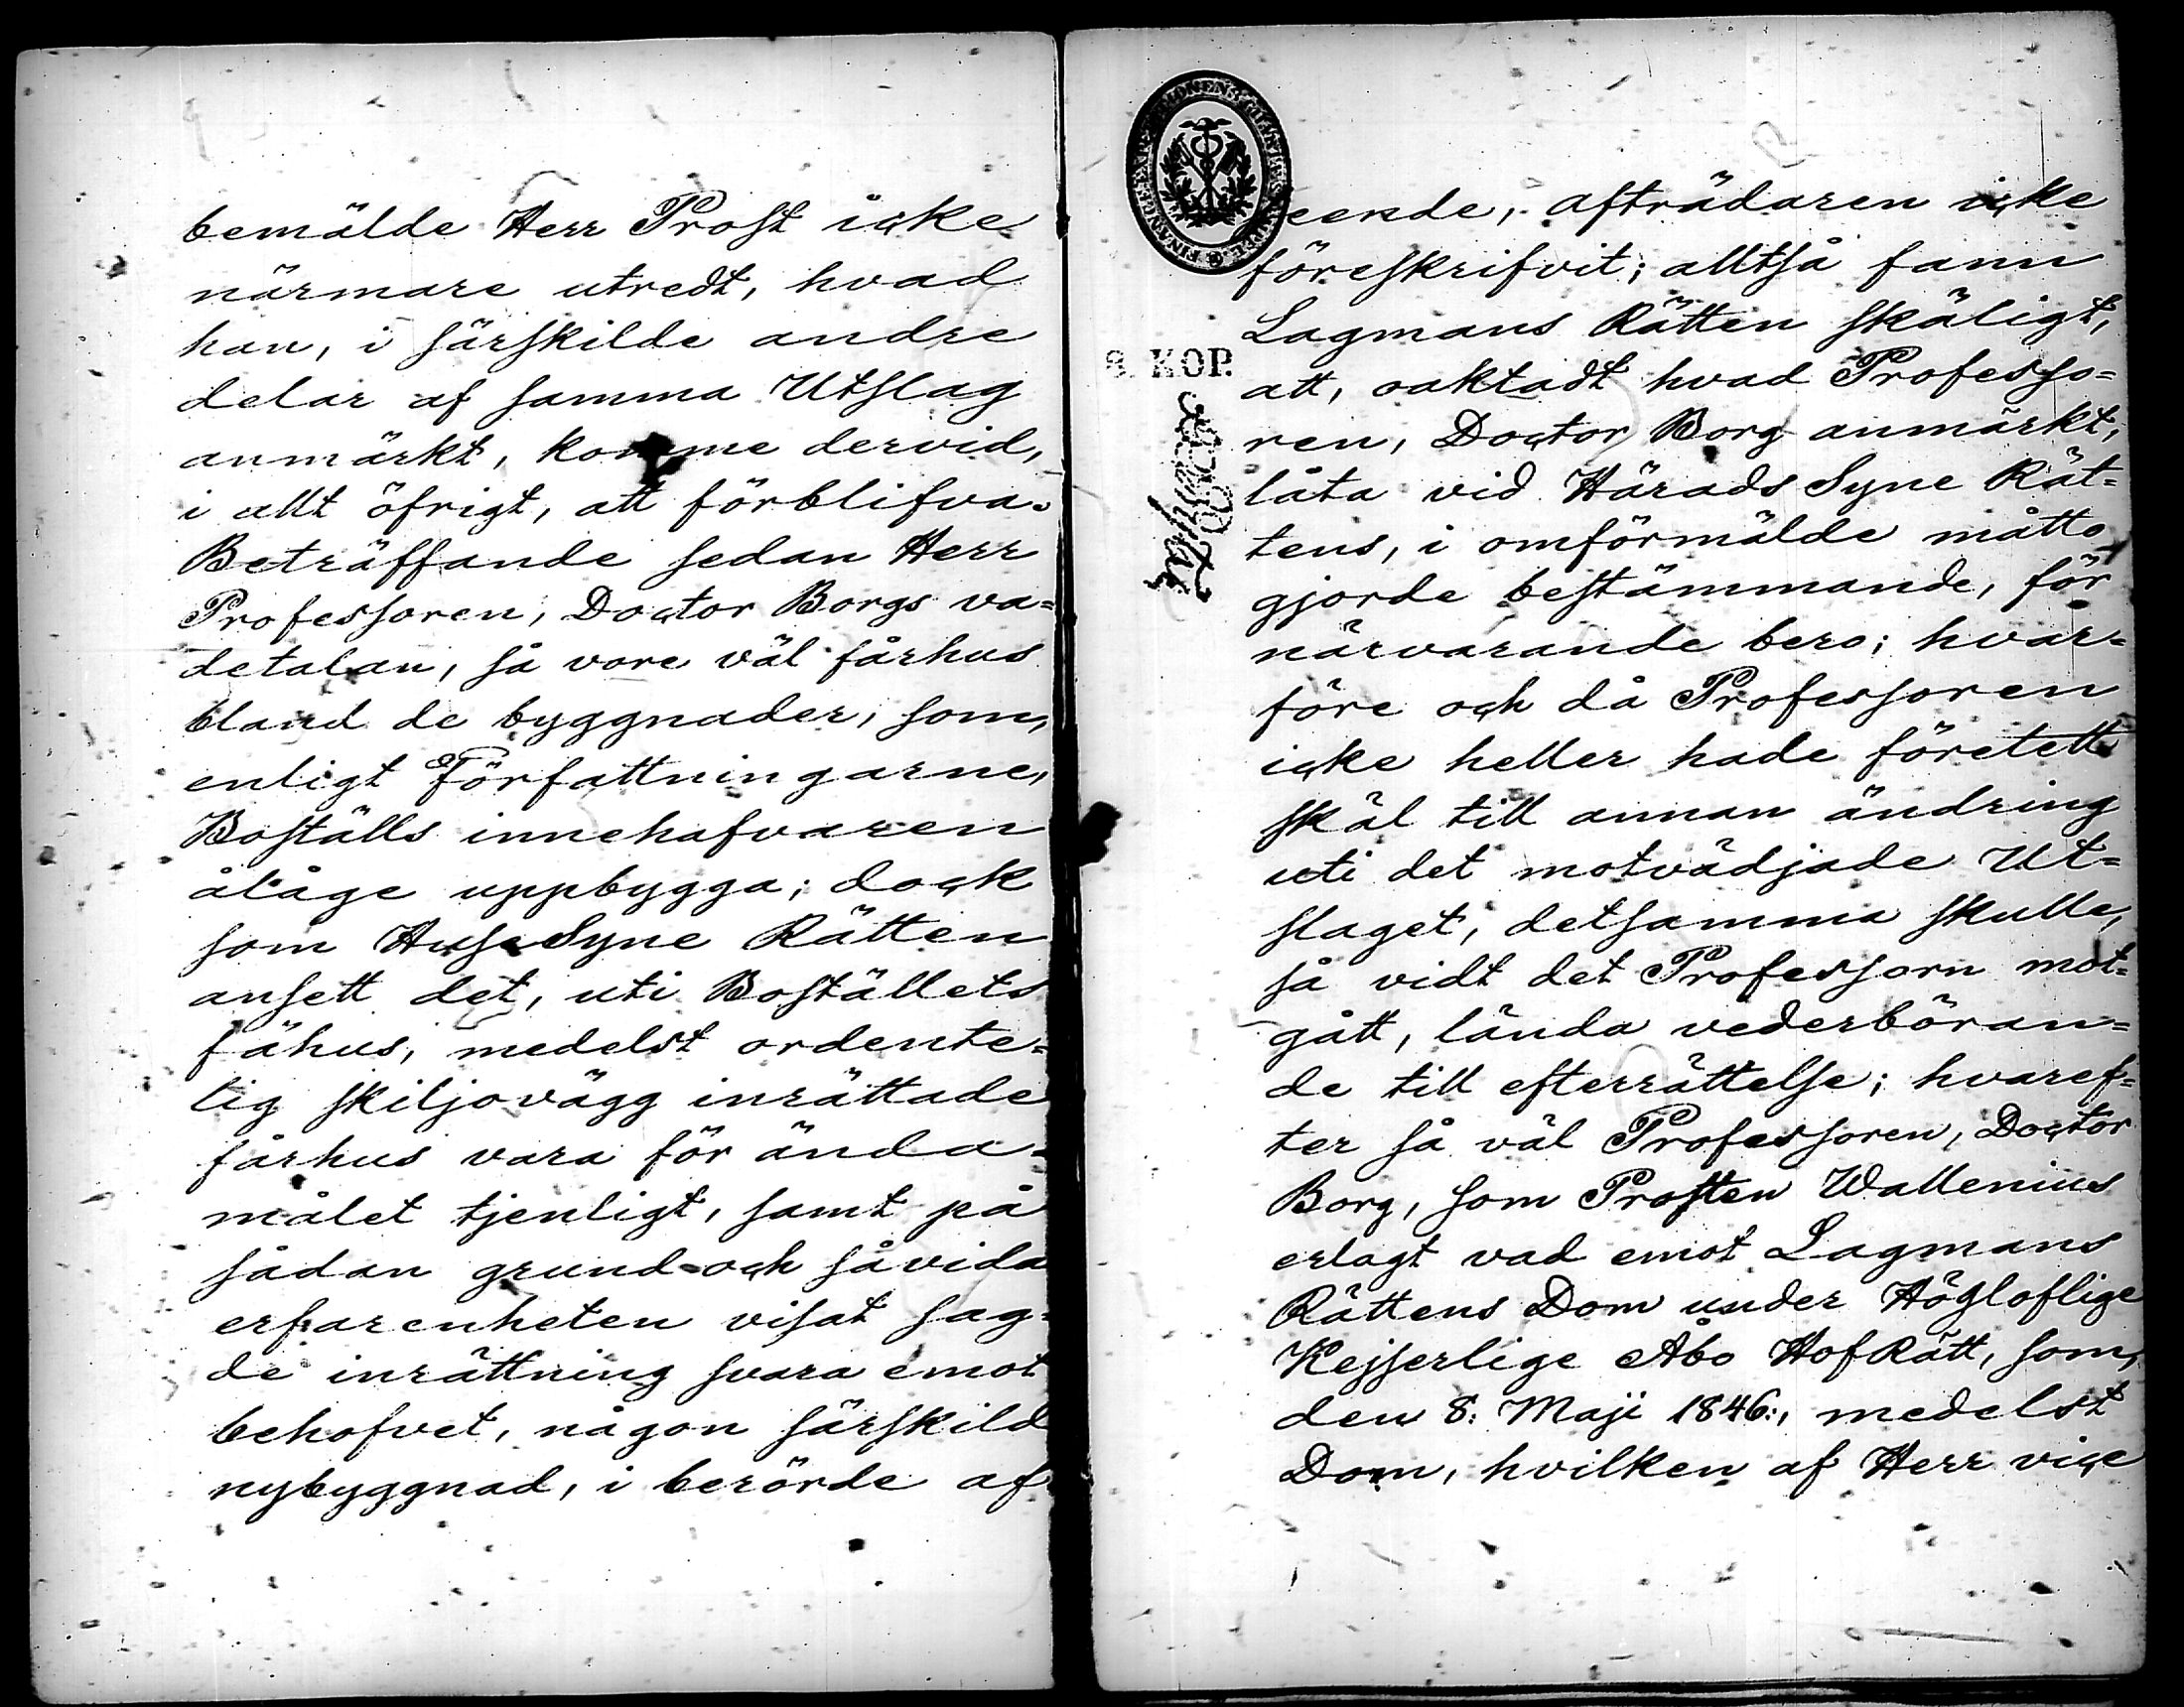 bemälde Herr Prost icke
närmare utredt, hvad
han, i särskilde andre
delar af samma Utslag
anmärkt, komme dervid,
i allt öfrigt, att förblifva.
Beträffande sedan Herr
Professoren, Doctor Borgs va=
detalan, så vore väl fårhus
bland de byggnader, som,
enligt Författningarne,
Boställs innehafvaren
ålåge uppbygga; dock
som HuseSyne Rätten
ansett det, uti Boställets
fähus, medelst ordente=
lig skiljovägg inrättade
fårhus vara för ända=
målet tjenligt, samt på
sådan grund och såvida
erfarenheten visat sag=
de inrättning svara emot
behofvet, någon särskild
nybyggnad, i berörde af=
seende, afträdaren icke
föreskrifvit; alltså fann
Lagmans Rätten skäligt,
8. KOP.
att, oaktadt hvad Professo=
ren, Doctor Borg anmärkt,
låta vid Härads Syne Rät=
tens, i omförmälde måtto
gjorde bestämmande, för
närvarande bero; hvar=
före och då Professoren
icke heller hade företett
skäl till annan ändring
uti det motvädjade Ut=
slaget, detsamma skulle,
så vidt det Professorn mot=
gått, lända vederböran=
de till efterrättelse; hvaref=
ter så väl Professoren, Doctor
Borg, som Prosten Wallenius
erlagt vad emot Lagmans
Rättens Dom under Högloflige
Kejserlige Åbo HofRätt, som,
den 8: Maji 1846:, medelst
Dom, hvilken af Herr vice